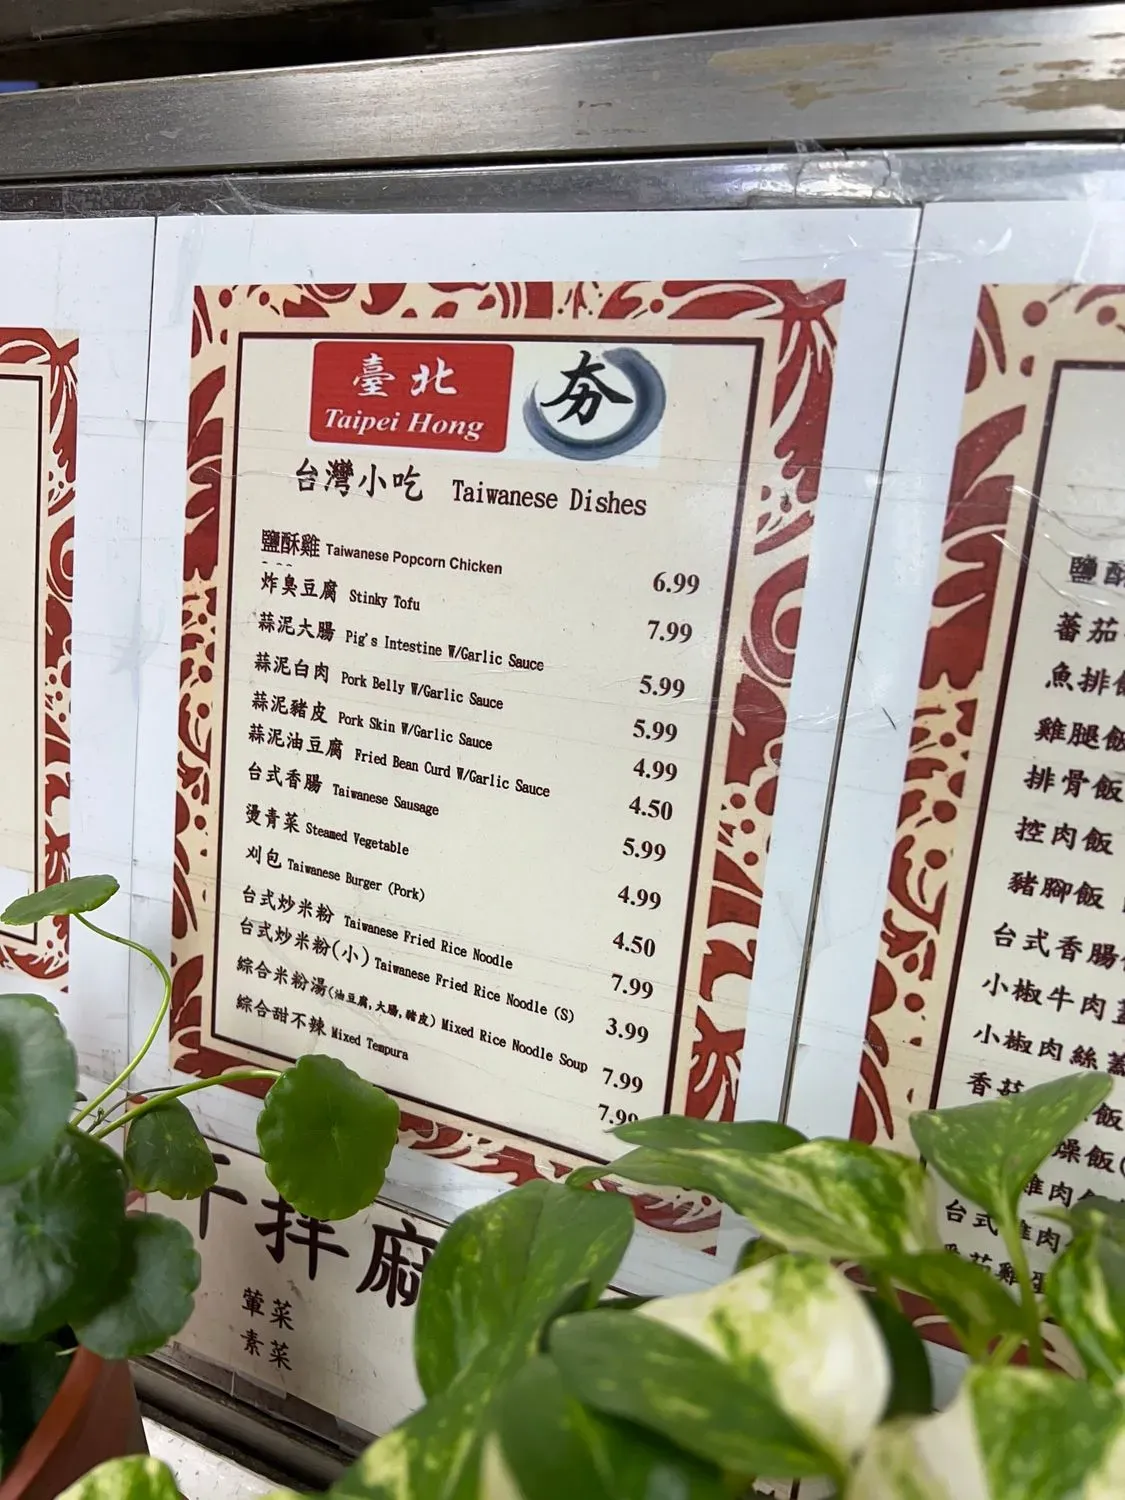 臺北
Taipei Hong
夯
台灣小吃 Taiwanese Dishes
鹽酥雞 Taiwanese Popcorn Chicken 6.99
炸臭豆腐 Stinky Tofu 7.99
蒜泥大腸 Pig's Intestine W/Garlic Sauce 5.99
蒜泥白肉 Pork Belly W/Garlic Sauce 5.99
蒜泥豬皮 Pork Skin W/Garlic Sauce 4.99
蒜泥油豆腐 Fried Bean Curd W/Garlic Sauce 4.50
台式香腸 Taiwanese Sausage 5.99
燙青菜 Steamed Vegetable 4.99
刈包 Taiwanese Burger (Pork) 4.50
台式炒米粉 Taiwanese Fried Rice Noodle 7.99
台式炒米粉(小) Taiwanese Fried Rice Noodle (S) 3.99
綜合米粉湯(油豆腐,大腸,豬皮) Mixed Rice Noodle Soup 7.99
綜合甜不辣 Mixed Tempura 7.99
拌麻
葷菜
素菜
鹽酥
蕃茄
魚排飯
雞腿飯
排骨飯
控肉飯
豬腳飯
台式香腸
小椒牛肉
小椒肉絲蓋
香菇
飯
燥飯(
雞肉
台式雞肉